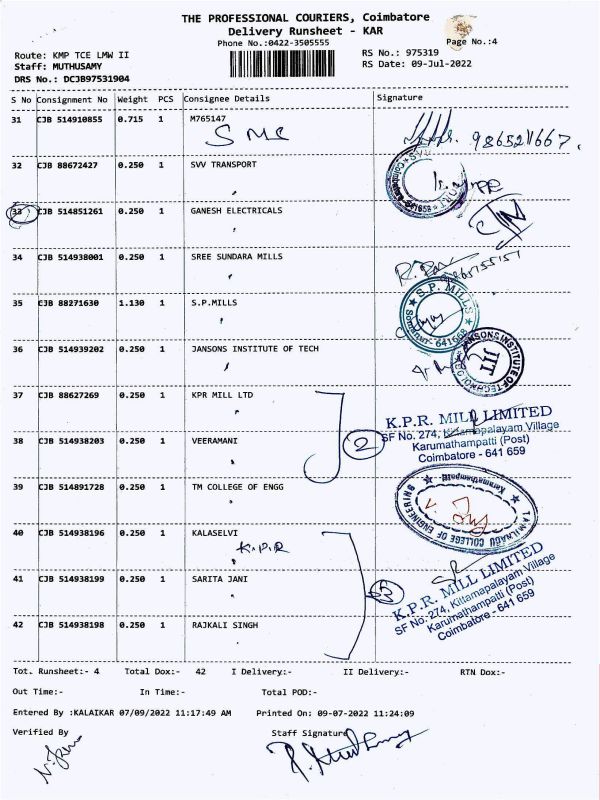 THE PROFESSIONAL COURIERS, Coimbatore
Delivery Runsheet - KAR
Phone No.:0422-3505555
Page No.:4
Route: KMP TCE LMW II
RS No.: 975319
Staff: MUTHUSAMY
RS Date: 09-Jul-2022
DRS No.: DCJB97531904
S No Consignment No Weight PCS Consignee Details Signature
31 CJB 514910855 0.715 1 M765147
SMC
32 CJB 88672427 0.250 1 SVV TRANSPORT
33 CJB 514851261 0.250 1 GANESH ELECTRICALS
34 CJB 514938001 0.250 1 SREE SUNDARA MILLS
35 CJB 88271630 1.130 1 S.P.MILLS
S.P. MILLS
36 CJB 514939202 0.250 1 JANSONS INSTITUTE OF TECH
JANSONS INSTITUTE OF TECHNOLOGY
JIT
37 CJB 88627269 0.250 1 KPR MILL LTD
K.P.R. MILL LIMITED
SF No. 274, Kittampalayam Village
Karumathampatti (Post)
Coimbatore - 641 659
38 CJB 514938203 0.250 1 VEERAMANI
2
39 CJB 514891728 0.250 1 TM COLLEGE OF ENGG
TAMILNADU COLLEGE OF ENGINEERING
Karumathampatti
40 CJB 514938196 0.250 1 KALASELVI
K.P.R
41 CJB 514938199 0.250 1 SARITA JANI
K.P.R. MILL LIMITED
SF No. 274, Kittampalayam Village
Karumathampatti (Post)
Coimbatore - 641 659
42 CJB 514938198 0.250 1 RAJKALI SINGH
Tot. Runsheet:- 4 Total Dox:- 42 I Delivery:- II Delivery:- RTN Dox:-
Out Time:- In Time:- Total POD:-
Entered By :KALAIKAR 07/09/2022 11:17:49 AM Printed On: 09-07-2022 11:24:09
Verified By Staff Signature